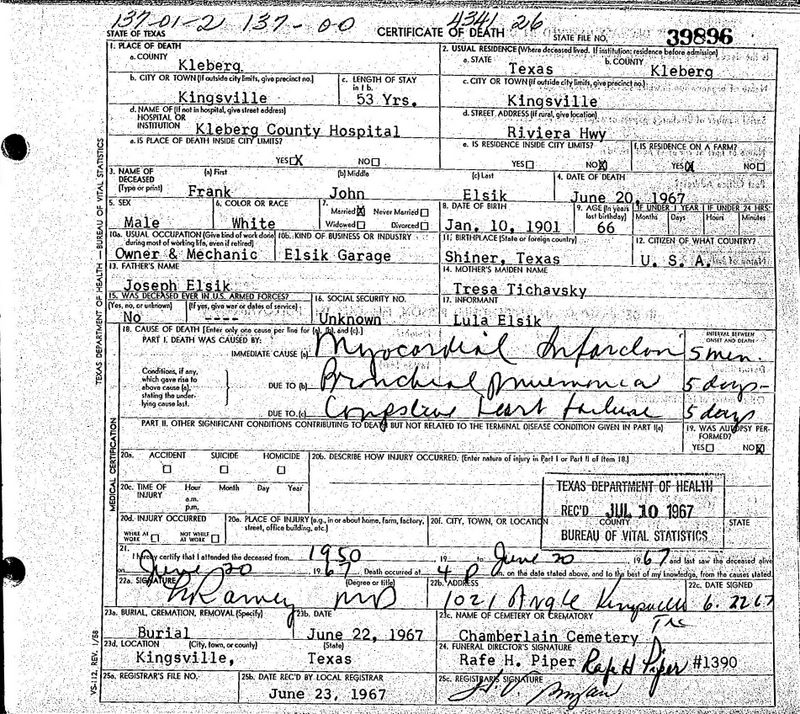 137-01-2 137-00 4341 26
STATE OF TEXAS CERTIFICATE OF DEATH STATE FILE NO. 39896
1. PLACE OF DEATH 2. USUAL RESIDENCE (Where deceased lived. If institution: residence before admission)
a. COUNTY a. STATE b. COUNTY
Kleberg Texas Kleberg
b. CITY OR TOWN (If outside city limits, give precinct no.) c. LENGTH OF STAY in 1 b. c. CITY OR TOWN (If outside city limits, give precinct no.)
Kingsville 53 Yrs. Kingsville
d. NAME OF (If not in hospital, give street address) HOSPITAL OR INSTITUTION d. STREET ADDRESS (If rural, give location)
Kleberg County Hospital Riviera Hwy
e. IS PLACE OF DEATH INSIDE CITY LIMITS? e. IS RESIDENCE INSIDE CITY LIMITS? f. IS RESIDENCE ON A FARM?
YES X NO YES NO X YES X NO
3. NAME OF DECEASED (Type or print) (a) First (b) Middle (c) Last 4. DATE OF DEATH
Frank John Elsik June 20, 1967
5. SEX 6. COLOR OR RACE 7. Married X Never Married Widowed Divorced 8. DATE OF BIRTH 9. AGE (In years last birthday) IF UNDER 1 YEAR Months Days IF UNDER 24 HRS. Hours Minutes
Male White Jan. 10, 1901 66
10a. USUAL OCCUPATION (Give kind of work done during most of working life, even if retired) 10b. KIND OF BUSINESS OR INDUSTRY 11. BIRTHPLACE (State or foreign country) 12. CITIZEN OF WHAT COUNTRY?
Owner & Mechanic Elsik Garage Shiner, Texas U. S. A.
13. FATHER'S NAME 14. MOTHER'S MAIDEN NAME
Joseph Elsik Tresa Tichavsky
15. WAS DECEASED EVER IN U.S. ARMED FORCES? 16. SOCIAL SECURITY NO. 17. INFORMANT
(Yes, no, or unknown) (If yes, give war or dates of service)
No ---- Unknown Lula Elsik
18. CAUSE OF DEATH [Enter only one cause per line for (a), (b), and (c).] INTERVAL BETWEEN ONSET AND DEATH
PART I. DEATH WAS CAUSED BY:
IMMEDIATE CAUSE (a) Myocardial Infarction 5 min.
Conditions, if any, which gave rise to above cause (a), stating the underlying cause last.
DUE TO (b) Bronchial pneumonia 5 days-
DUE TO (c) Congestive heart failure 5 days
PART II. OTHER SIGNIFICANT CONDITIONS CONTRIBUTING TO DEATH BUT NOT RELATED TO THE TERMINAL DISEASE CONDITION GIVEN IN PART I(a) 19. WAS AUTOPSY PERFORMED?
YES NO X
20a. ACCIDENT SUICIDE HOMICIDE 20b. DESCRIBE HOW INJURY OCCURRED. (Enter nature of injury in Part I or Part II of item 18.)
20c. TIME OF INJURY Hour a.m. p.m. Month Day Year
TEXAS DEPARTMENT OF HEALTH
REC'D JUL 10 1967
BUREAU OF VITAL STATISTICS
20d. INJURY OCCURRED WHILE AT WORK NOT WHILE AT WORK 20e. PLACE OF INJURY (e.g., in or about home, farm, factory, street, office building, etc.) 20f. CITY, TOWN, OR LOCATION COUNTY STATE
21. I hereby certify that I attended the deceased from 1950 19 to June 20 1967 and last saw the deceased alive
on June 20 1967 Death occurred at 4 P m. on the date stated above, and to the best of my knowledge, from the causes stated.
22a. SIGNATURE (Degree or title) 22b. ADDRESS 22c. DATE SIGNED
Ramey MD 1021 Angle Kingsville 6.22 67
23a. BURIAL, CREMATION, REMOVAL (Specify) 23b. DATE 23c. NAME OF CEMETERY OR CREMATORY
Burial June 22, 1967 Chamberlain Cemetery
23d. LOCATION (City, town, or county) (State) 24. FUNERAL DIRECTOR'S SIGNATURE
Kingsville, Texas Rafe H. Piper Rafe H Piper #1390
25a. REGISTRAR'S FILE NO. 25b. DATE REC'D BY LOCAL REGISTRAR 25c. REGISTRAR'S SIGNATURE
June 23, 1967
TEXAS DEPARTMENT OF HEALTH — BUREAU OF VITAL STATISTICS
MEDICAL CERTIFICATION
VS-112, REV. 1/58